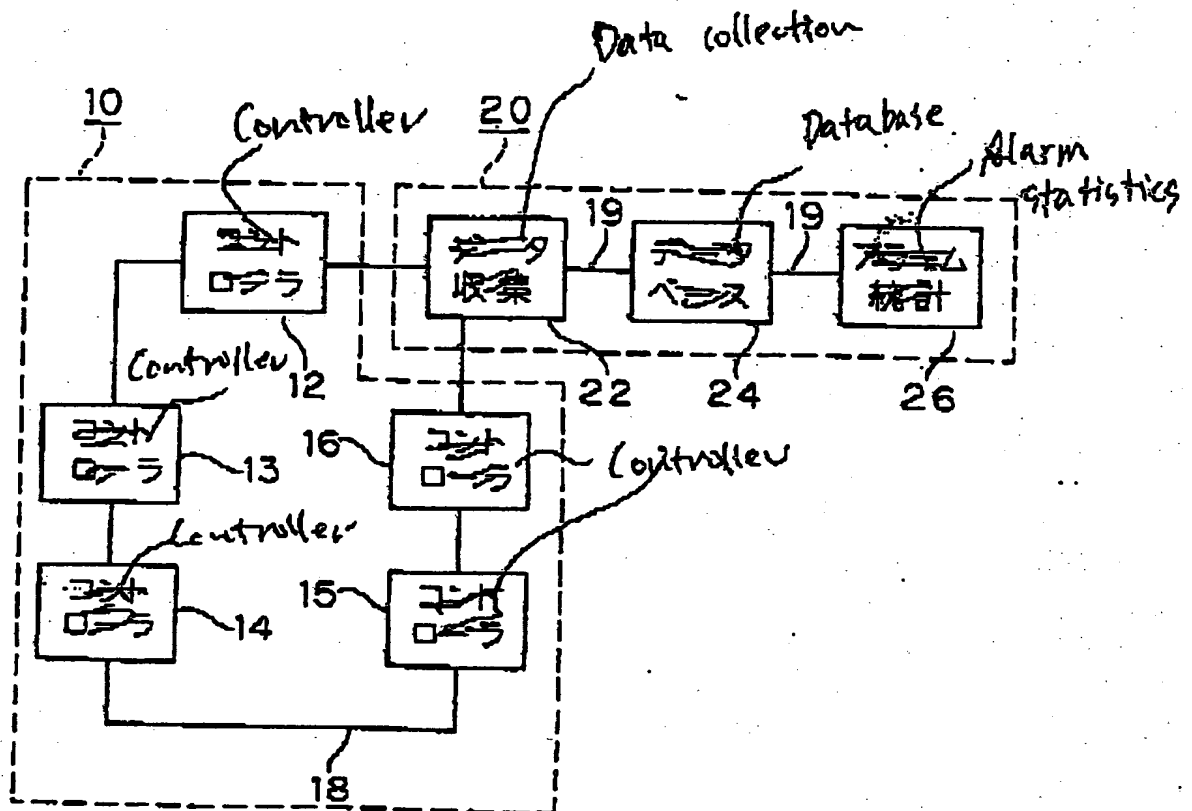 Data collection
10
Controller
20
Database
Alarm
statistics
コント
ローラ
データ
収集
19
データ
ベース
19
アラーム
統計
12
22
24
26
Controller
コント
ローラ
13
16
コント
ローラ
Controller
Controller
コント
ローラ
14
15
コント
ローラ
18